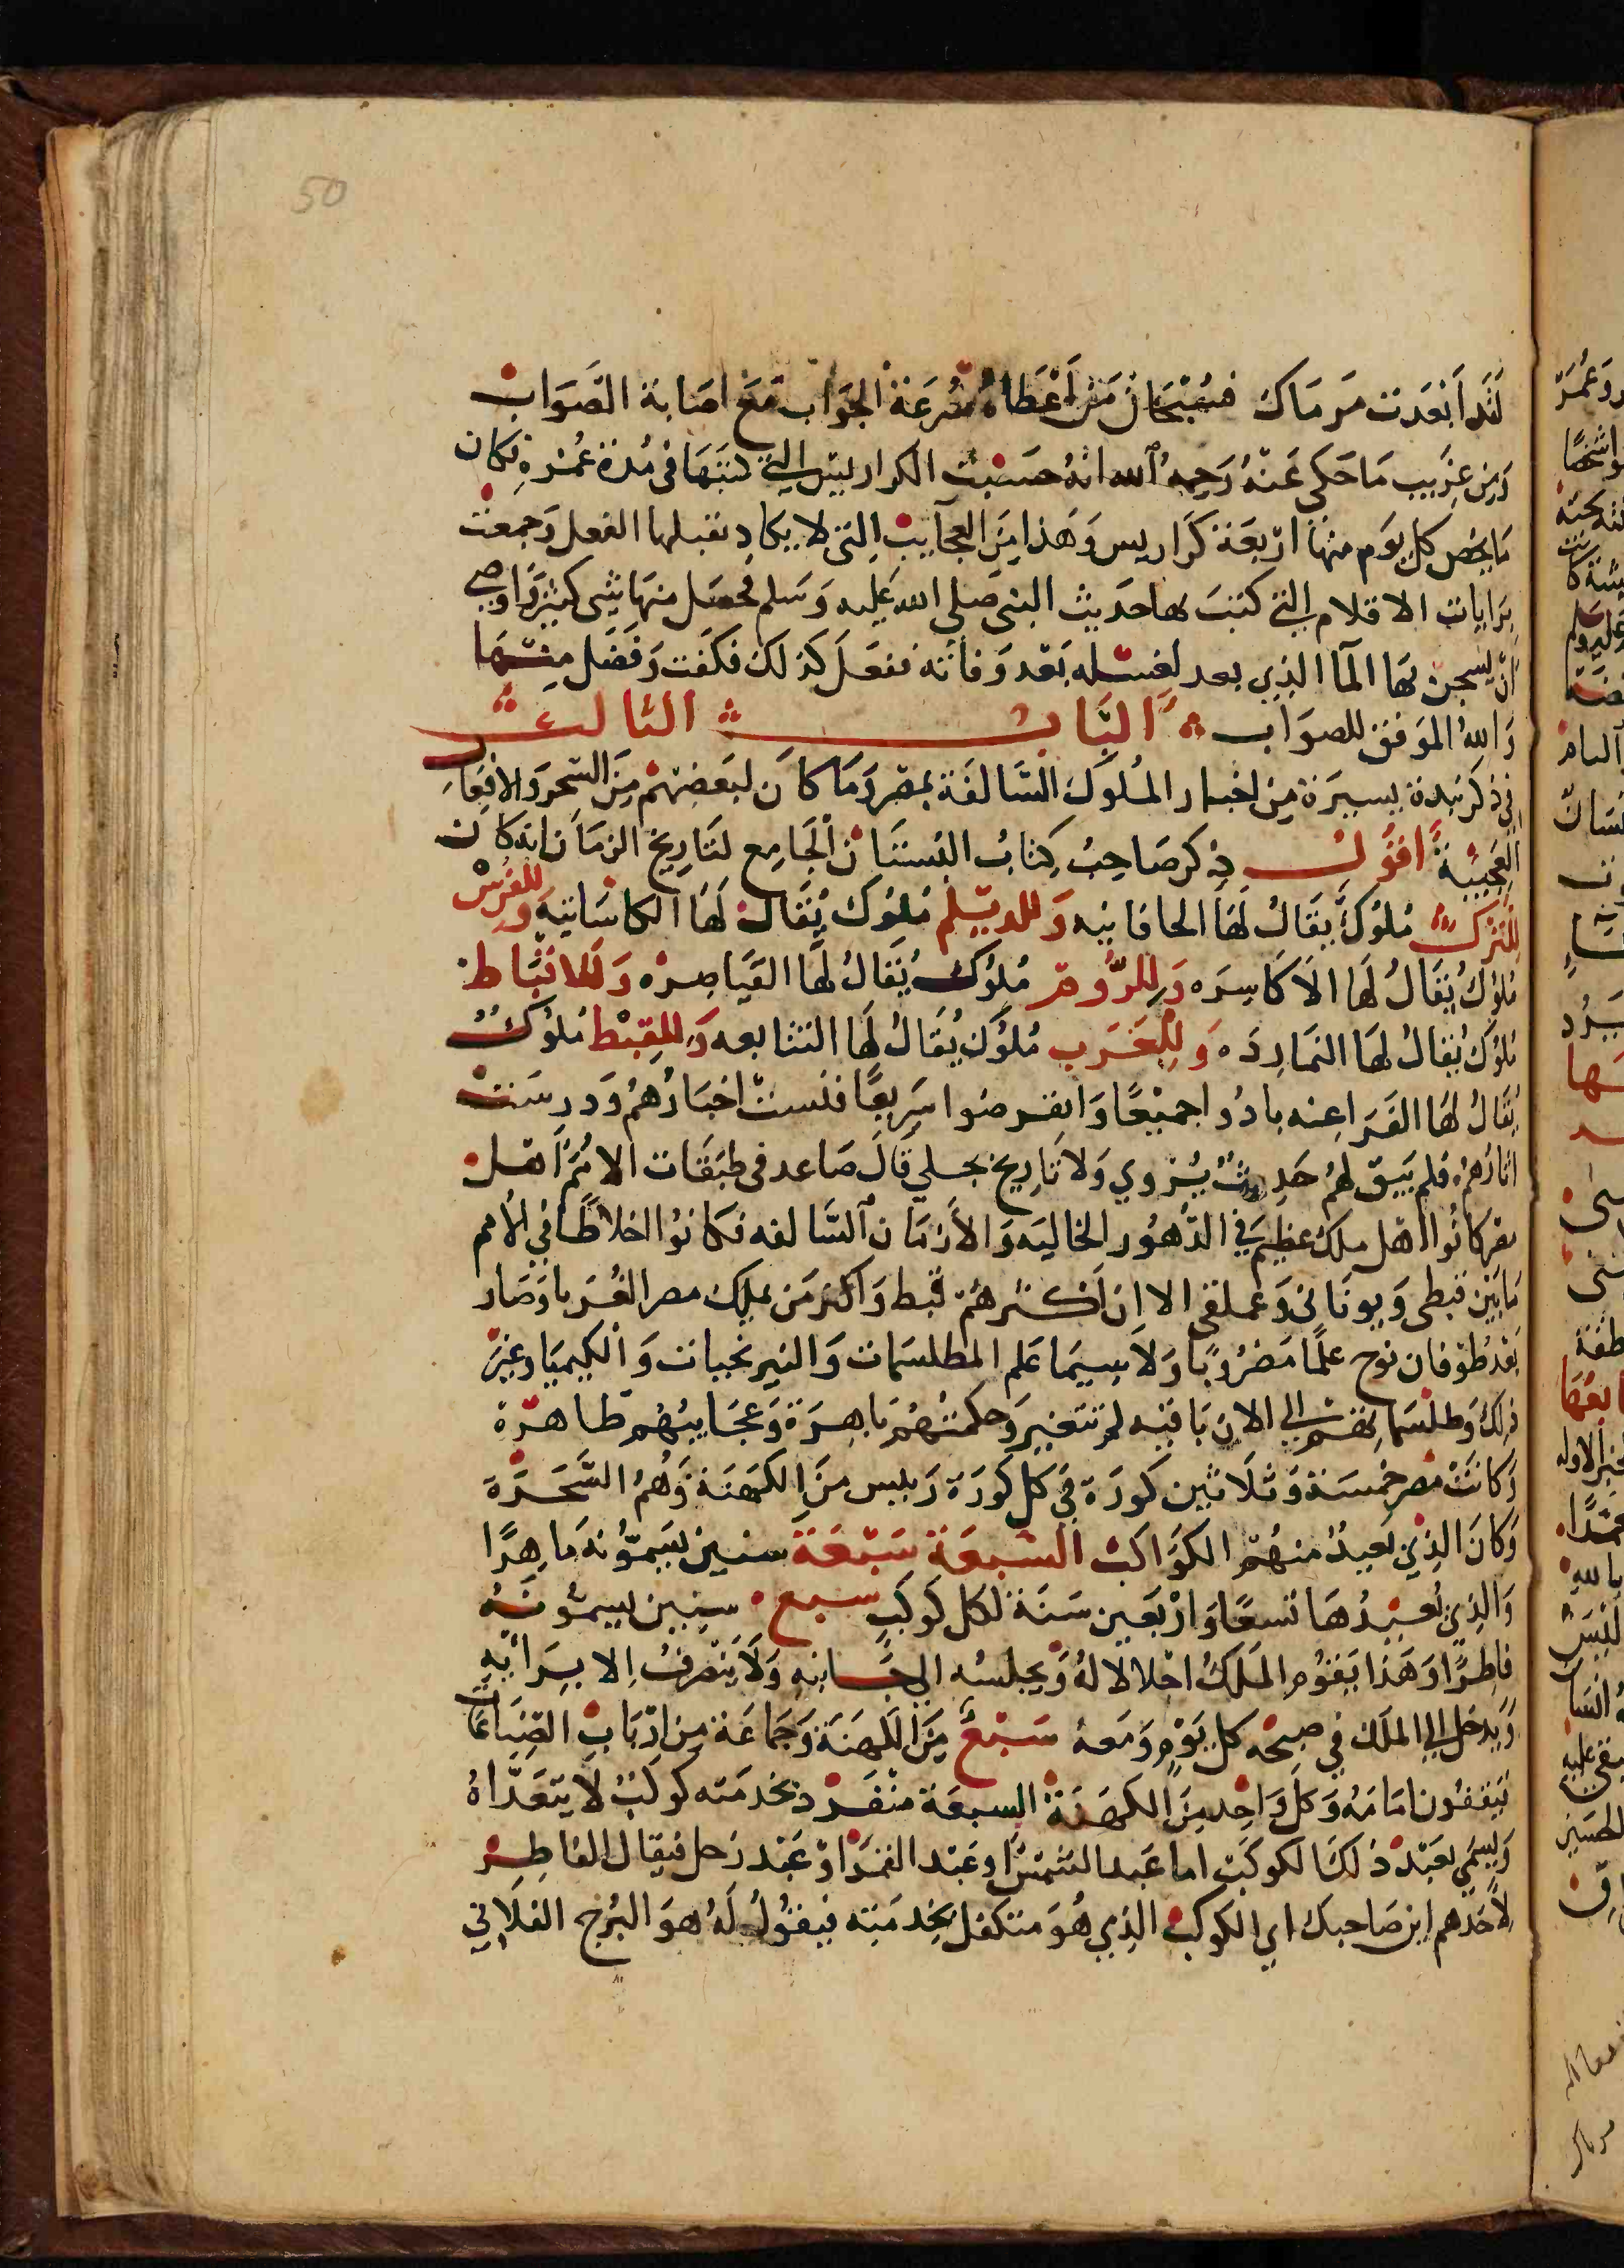 50
لقد ابعدت مرماك فسبحان من اعطاه سرعة الجواب مع اصابة الصواب
ومن غريب ما حكى عنه رحمه الله انه حسبت الكراريس التي كتبها في مدة عمره فكان
ما يخص كل يوم منها اربعة كراريس وهذا من العجايب التي لا يكاد تقبلها العقل وجمعت
برايات الاقلام التي كتب بها حديث النبي صلى الله عليه وسلم فحصل منها شي كثير واوصى
ان يسخن بها الما الذي يعد لغسله بعد وفاته ففعل كذلك فكفت وفضل منها
والله الموفق للصواب الباب الثالث
في ذكر نبذة يسيرة من اخبار الملوك السالفة بمصر وما كان لبعضهم من السحر والافعال
العجيبة اقول ذكر صاحب كتاب البستان الجامع لتاريخ الزمان انه كان
للترك ملوك يقال لها الخاقانيه وللديلم ملوك يقال لها الكاسانيه وللفرس
ملوك يقال لها الاكاسره وللروم ملوك يقال لها القياصره وللانباط
ملوك يقال لها النمارده وللعرب ملوك يقال لها التتابعه وللقبط ملوك
يقال لها الفراعنه بادوا جميعا وانقرضوا سريعا فنسيت اخبارهم ودرست
اثارهم فلم يبق لهم حديث يروي ولا تاريخ يجلي قال صاعد في طبقات الامم اهل
مصر كانوا اهل ملك عظيم في الدهور الخاليه والازمان السالفه فكانوا اخلاطا في الامم
ما بين قبطي ويوناني وعملقي الا ان اكثرهم قبط واكثر من يملك مصر الغربا وصار
بعد طوفان نوح علما مضروبا ولا سيما علم المطلسمات والنيرنجيات والكيميا وغير
ذلك وطلسماتهم الي الان باقيه لم تتغير وحكمتهم باهرة وعجايبهم ظاهرة
وكانت مصر خمسة وثلاثين كورة في كل كورة رييس من الكهنة وهم السحرة
وكان الذي يعبد منهم الكواكب السبعة سبعة سنين يسمونه ماهرا
والذي يعبدها تسعا واربعين سنة لكل كوكب سبع سنين يسمونه
فاطرا وهذا يقوم الملك اجلالا له ويجلسه الي جانبه ولا يتصرف الا برايه
ويدخل الي الملك في صبحه كل يوم ومعه سبع من الكهنة وجماعة من ارباب الصناعات
فيقفون امامه وكل واحد من الكهنة السبعة منفرد بخدمته كوكب لا يتعداه
ويسمي بعبد ذلك الكوكب اما عبد الشمس او عبد القمر او عبد زحل فيقال الفاطر
لاحدهم اين صاحبك اي الكوكب الذي هو متكفل بخدمته فيقول له هو البرج الفلاني